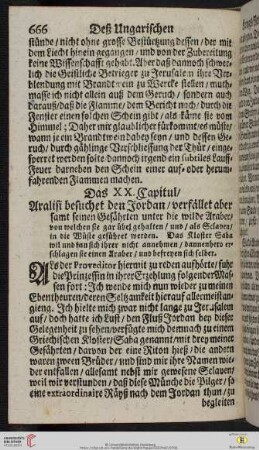 666 Deß Ungarischen
stünde / nicht ohne grosse Bestürtzung dessen / der mit
dem Liecht hinein gegangen / und von der Zubereitung
keine Wissenschafft gehabt. Aber daß dannoch schwer-
lich die Geistliche Betrieger zu Jerusalem ihre Ver-
blendung mit Brandtwein zu Wercke stellen / muth-
masse ich nicht allein auß dem Geruch / sondern auch
darauß / daß die Flamme / dem Bericht nach / durch die
Fenster einen solchen Schein gibt / als käme sie vom
Himmel; Daher mir glaublicher fürkommet / es müste /
wann je ein Brandtwein dabey seyn / und dessen Ge-
ruch / durch gählinge Verschliessung der Thür / einge-
sperret werden solte / dannoch irgend ein subtiles Lauff-
Feuer darneben den Schein einer auf- oder herum-
fahrenden Flammen machen.
Das XX. Capitul /
Aralist besuchet den Jordan / verfället aber
samt seinen Gefährten unter die wilde Araber /
von welchen sie gar übel gehalten / und / als Sclaven /
in die Wüste geführet werden. Das Kloster Saba
wil und kan sich ihrer nicht annehmen / dannenhero er-
schlagen sie einen Araber / und befreyen sich selber.
Als der Proveditor hiermit zu reden aufhörte / fuhr
die Prinzessin in ihrer Erzehlung folgender Mas-
sen fort: Ich wende mich nun wieder zu meinen
Ebentheuren / deren Seltzamkeit hierauf allermeist an-
gieng. Ich hielte mich zwar nicht lange zu Jerusalem
auf / doch hatte ich Lust / den Fluß Jordan bey dieser
Gelegenheit zu sehen / verfügte mich demnach zu einem
Griechischen Kloster / Saba genannt / mit drey meiner
Gefährten / davon der eine Riton hieß / die andern
waren zween Brüder / und sind mir ihre Namen wie-
der entfallen / allesamt nebst mir gewesene Sclaven /
weil wir verstunden / daß diese Münche die Pilger / so
eine extraordinaire Räyß nach dem Jordan thun / zu
begleiten